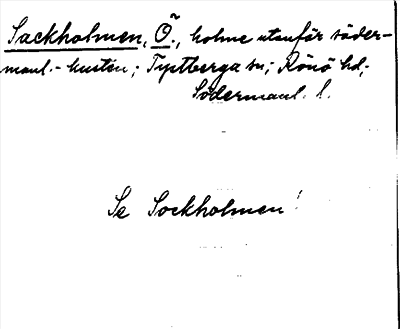 Sackholmen, Ö., holme utanför söder-
manl.- kusten; Tystberga sn; Rönö hd;
Södermanl. l.
Se Sockholmen!